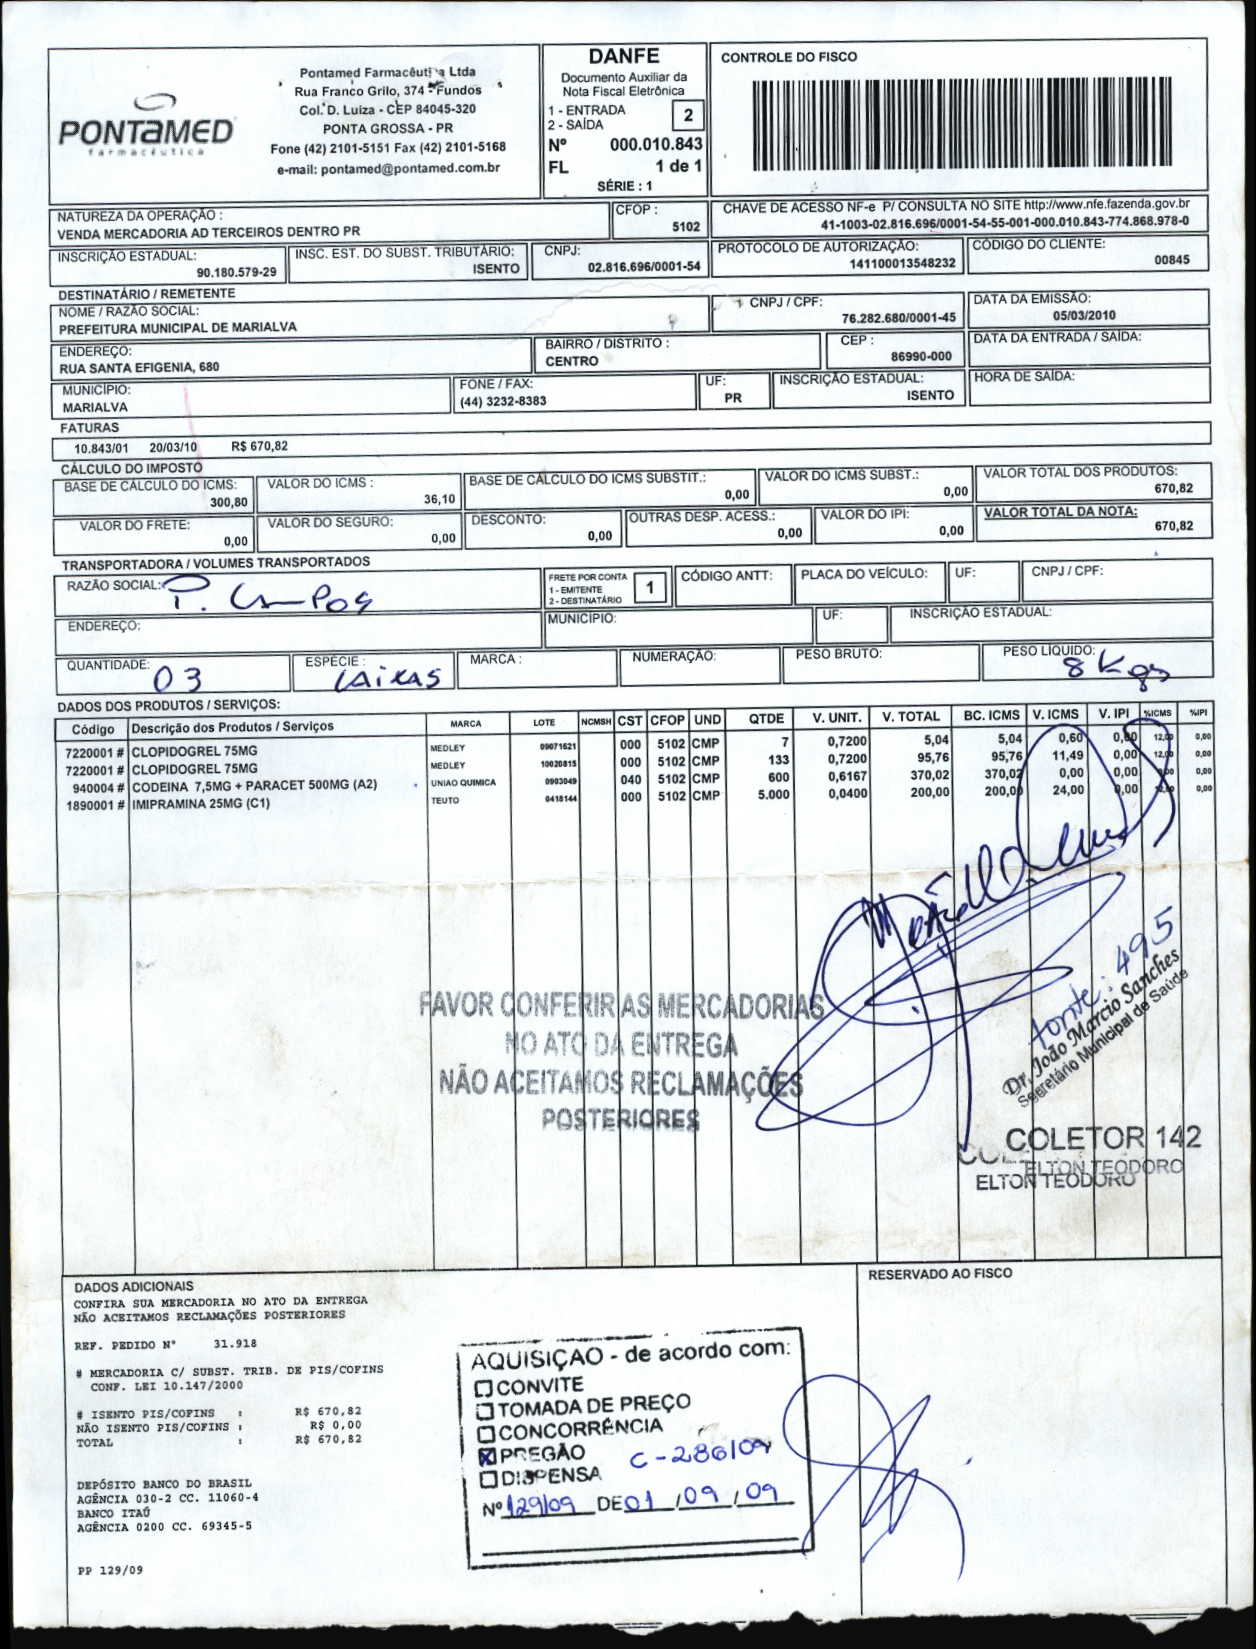 PONTAMED
farmacêutica
Pontamed Farmacêutica Ltda
Rua Franco Grilo, 374 - Fundos
Col. D. Luiza - CEP 84045-320
PONTA GROSSA - PR
Fone (42) 2101-5151 Fax (42) 2101-5168
e-mail: pontamed@pontamed.com.br
DANFE
Documento Auxiliar da
Nota Fiscal Eletrônica
1 - ENTRADA
2 - SAÍDA
2
Nº 000.010.843
FL 1 de 1
SÉRIE : 1
CONTROLE DO FISCO
NATUREZA DA OPERAÇÃO :
VENDA MERCADORIA AD TERCEIROS DENTRO PR
CFOP :
5102
CHAVE DE ACESSO NF-e P/ CONSULTA NO SITE http://www.nfe.fazenda.gov.br
41-1003-02.816.696/0001-54-55-001-000.010.843-774.868.978-0
INSCRIÇÃO ESTADUAL:
90.180.579-29
INSC. EST. DO SUBST. TRIBUTÁRIO:
ISENTO
CNPJ:
02.816.696/0001-54
PROTOCOLO DE AUTORIZAÇÃO:
141100013548232
CÓDIGO DO CLIENTE:
00845
DESTINATÁRIO / REMETENTE
NOME / RAZÃO SOCIAL:
PREFEITURA MUNICIPAL DE MARIALVA
CNPJ / CPF:
76.282.680/0001-45
DATA DA EMISSÃO:
05/03/2010
ENDEREÇO:
RUA SANTA EFIGENIA, 680
BAIRRO / DISTRITO :
CENTRO
CEP :
86990-000
DATA DA ENTRADA / SAÍDA:
MUNICÍPIO:
MARIALVA
FONE / FAX:
(44) 3232-8383
UF:
PR
INSCRIÇÃO ESTADUAL:
ISENTO
HORA DE SAÍDA:
FATURAS
10.843/01 20/03/10 R$ 670,82
CÁLCULO DO IMPOSTO
BASE DE CÁLCULO DO ICMS:
300,80
VALOR DO ICMS :
36,10
BASE DE CÁLCULO DO ICMS SUBSTIT.:
0,00
VALOR DO ICMS SUBST.:
0,00
VALOR TOTAL DOS PRODUTOS:
670,82
VALOR DO FRETE:
0,00
VALOR DO SEGURO:
0,00
DESCONTO:
0,00
OUTRAS DESP. ACESS.:
0,00
VALOR DO IPI:
0,00
VALOR TOTAL DA NOTA:
670,82
TRANSPORTADORA / VOLUMES TRANSPORTADOS
RAZÃO SOCIAL: P. Campos
FRETE POR CONTA
1 - EMITENTE
2 - DESTINATÁRIO
1
CÓDIGO ANTT:
PLACA DO VEÍCULO:
UF:
CNPJ / CPF:
ENDEREÇO:
MUNICÍPIO:
UF:
INSCRIÇÃO ESTADUAL:
QUANTIDADE: 03
ESPÉCIE : CAixAS
MARCA :
NUMERAÇÃO:
PESO BRUTO:
PESO LÍQUIDO: 8 Kgs
DADOS DOS PRODUTOS / SERVIÇOS:
Código Descrição dos Produtos / Serviços MARCA LOTE NCMSH CST CFOP UND QTDE V. UNIT. V. TOTAL BC. ICMS V. ICMS V. IPI %ICMS %IPI
7220001 # CLOPIDOGREL 75MG MEDLEY 09071621 000 5102 CMP 7 0,7200 5,04 5,04 0,60 0,00 12,00 0,00
7220001 # CLOPIDOGREL 75MG MEDLEY 10020815 000 5102 CMP 133 0,7200 95,76 95,76 11,49 0,00 12,00 0,00
940004 # CODEINA 7,5MG + PARACET 500MG (A2) UNIAO QUIMICA 0903049 040 5102 CMP 600 0,6167 370,02 370,02 0,00 0,00 0,00 0,00
1890001 # IMIPRAMINA 25MG (C1) TEUTO 0418144 000 5102 CMP 5.000 0,0400 200,00 200,00 24,00 0,00 12,00 0,00
FAVOR CONFERIR AS MERCADORIAS
NO ATO DA ENTREGA
NÃO ACEITAMOS RECLAMAÇÕES
POSTERIORES
fonte: 495
Dr. João Marcio Sanches
Secretário Municipal de Saúde
COLETOR 142
ELTON TEODORO
ELTON TEODORO
DADOS ADICIONAIS
CONFIRA SUA MERCADORIA NO ATO DA ENTREGA
NÃO ACEITAMOS RECLAMAÇÕES POSTERIORES
REF. PEDIDO Nº 31.918
# MERCADORIA C/ SUBST. TRIB. DE PIS/COFINS
CONF. LEI 10.147/2000
# ISENTO PIS/COFINS : R$ 670,82
NÃO ISENTO PIS/COFINS : R$ 0,00
TOTAL : R$ 670,82
DEPÓSITO BANCO DO BRASIL
AGÊNCIA 030-2 CC. 11060-4
BANCO ITAÚ
AGÊNCIA 0200 CC. 69345-5
PP 129/09
AQUISIÇÃO - de acordo com:
CONVITE
TOMADA DE PREÇO
CONCORRÊNCIA
PREGÃO C-286/09
DISPENSA
Nº 129/09 DE 01 / 09 / 09
RESERVADO AO FISCO